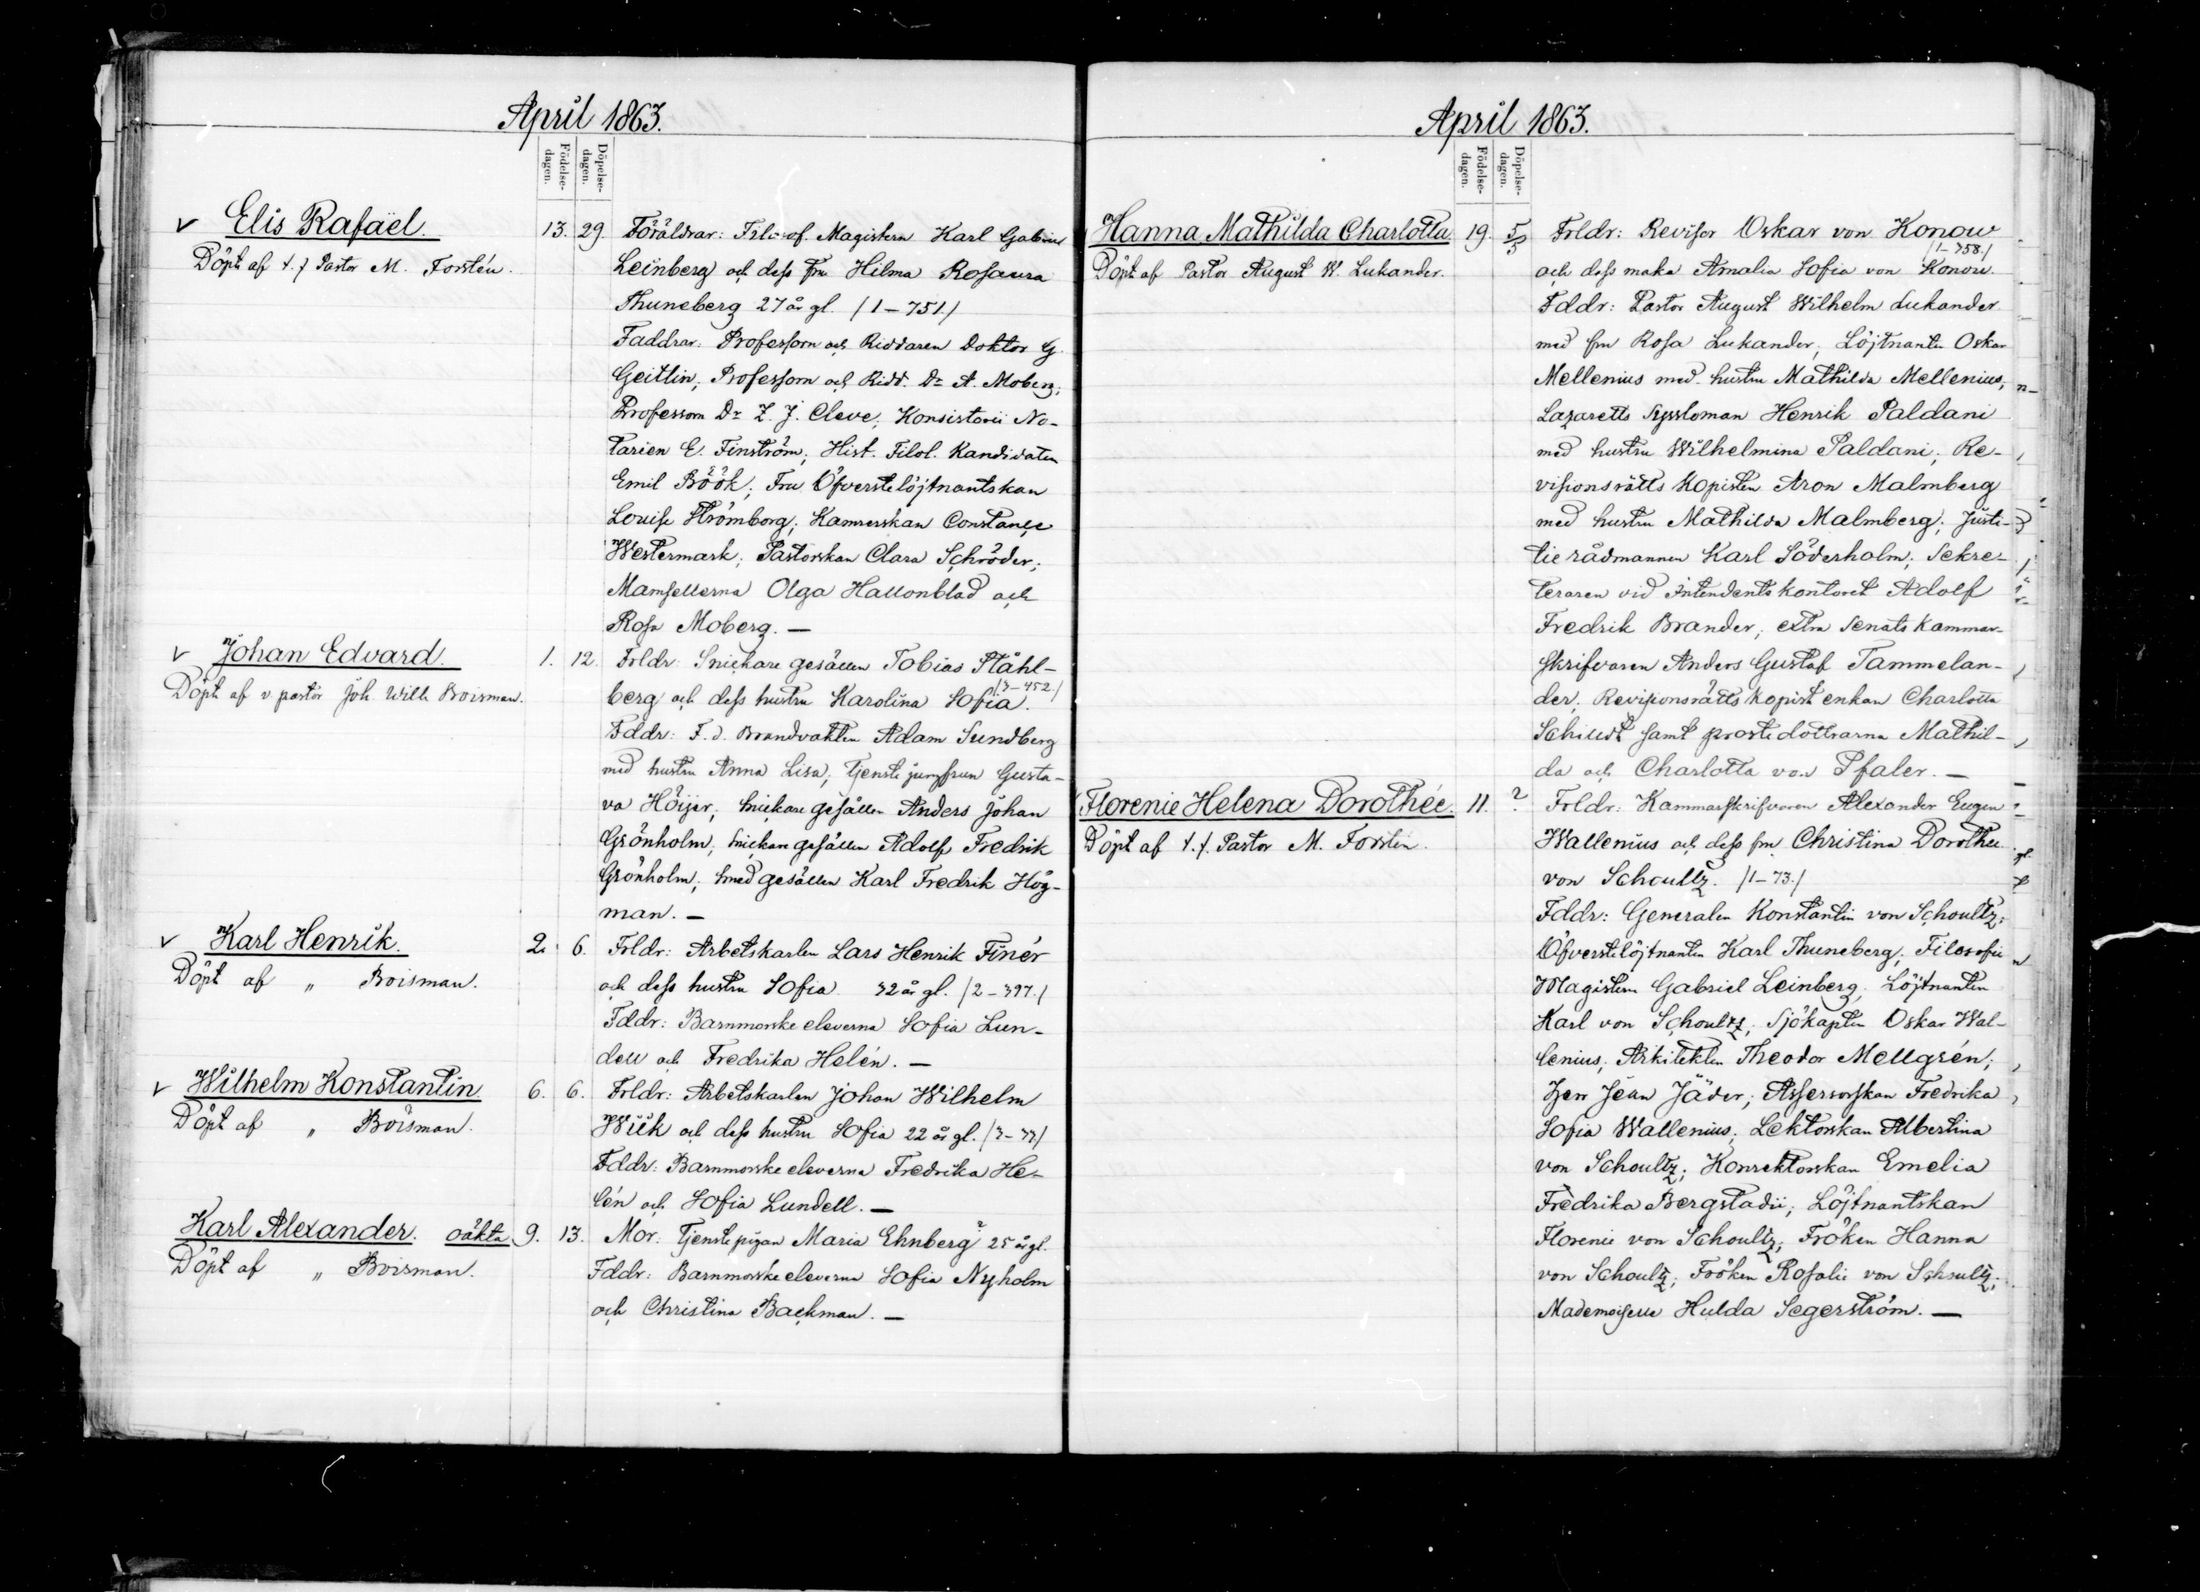 April 1863.
Födelse-
dagen.
Döpelse-
dagen.
Elis Rafaël.
Döpt af t. f. Pastor M. Forstén.
13. 29. Föräldrar: Filosof. Magistern Karl Gabriel
Leinberg och dess fru Hilma Rosaura
Thuneberg 27 år gl. /1–751./
Faddrar: Professorn och Riddaren Doktor G.
Geitlin; Professorn och Ridd. Dr A. Moberg;
Professorn Dr Z. J. Cleve; Konsistorii No-
tarien E. Finström; Hist. Filol. Kandidaten
Emil Böök; Fru Öfverstelöjtnantskan
Louise Strömborg; Kamrerskan Constance
Westermark; Pastorskan Clara Schröder;
Mamsellerna Olga Hallonblad och
Rosa Moberg. —
Johan Edvard.
Döpt af v pastor Joh. Wilh Boisman.
1. 12. Frldr: Snickare gesällen Tobias Ståhl-
berg och dess hustru Karolina Sofia. /3–452./
Fddr: F. d. Brandvakten Adam Sundberg
med hustru Anna Lisa; Tjenste jungfrun Gusta-
va Höijer; Snickare gesällen Anders Johan
Grönholm; Snickare gesällen Adolf Fredrik
Grönholm; Smed gesällen Karl Fredrik Hög-
man. —
Karl Henrik.
Döpt af „ Boisman.
2. 6. Frldr: Arbetskarlen Lars Henrik Finér
och dess hustru Sofia 32 år gl. /2–397./
Fddr: Barnmorske eleverna Sofia Lun-
dell och Fredrika Helén. —
Wilhelm Konstantin.
Döpt af „ Boisman.
6. 6. Frldr: Arbetskarlen Johan Wilhelm
Wiik och dess hustru Sofia 22 år gl. /3–33/
Fddr: Barnmorske eleverna Fredrika He-
lén och Sofia Lundell. —
Karl Alexander. oäkta
Döpt af „ Boisman.
9. 13. Mor: Tjenste pigan Maria Ehnberg 25 år gl.
Fddr: Barnmorske eleverna Sofia Nyholm
och Christina Backman. —
April 1863.
Födelse-
dagen.
Döpelse-
dagen.
Hanna Mathilda Charlotta
Döpt af Pastor August W. Lukander.
19. 5/5 Frldr: Revisor Oskar von Konow
och dess maka Amalia Sofia von Konow. /1–358./
Fddr: Pastor August Wilhelm Lukander
med fru Rosa Lukander; Löjtnanten Oskar
Mellenius med hustru Mathilda Mellenius;
Lazaretts Syssloman Henrik Paldani
med hustru Wilhelmina Paldani; Re-
visionsrätts Kopisten Aron Malmberg
med hustru Mathilda Malmberg; Justi-
tierådmannen Karl Söderholm; Sekre-
teraren vid Intendentskontoret Adolf
Fredrik Brander; extra Senats Kammar-
skrifvaren Anders Gustaf Tammelan-
der; Revisionsrätts Kopist enkan Charlotta
Schildt samt proste döttrarna Mathil-
da och Charlotta von Pfaler. —
Florenie Helena Dorothée.
Döpt af t. f. Pastor M. Forstén.
11. ? Frldr: Kammarskrifvaren Alexander Eugen
Wallenius och dess fru Christina Dorothee
von Schoultz. /1–73./
Fddr: Generalen Konstantin von Schoultz;
Öfverstelöjtnanten Karl Thuneberg; Filosofie
Magistern Gabriel Leinberg; Löjtnanten
Karl von Schoultz; Sjökapten Oskar Wal-
lenius; Arkitekten Theodor Mellgrén;
Herr Jean Jäder; Assessorskan Fredrika
Sofia Wallenius; Lektorskan Albertina
von Schoultz; Konrektorskan Emelia
Fredrika Bergstadii; Löjtnantskan
Florenie von Schoultz; Fröken Hanna
von Schoultz; Fröken Rosalie von Schoultz;
Mademoiselle Hulda Segerström. —